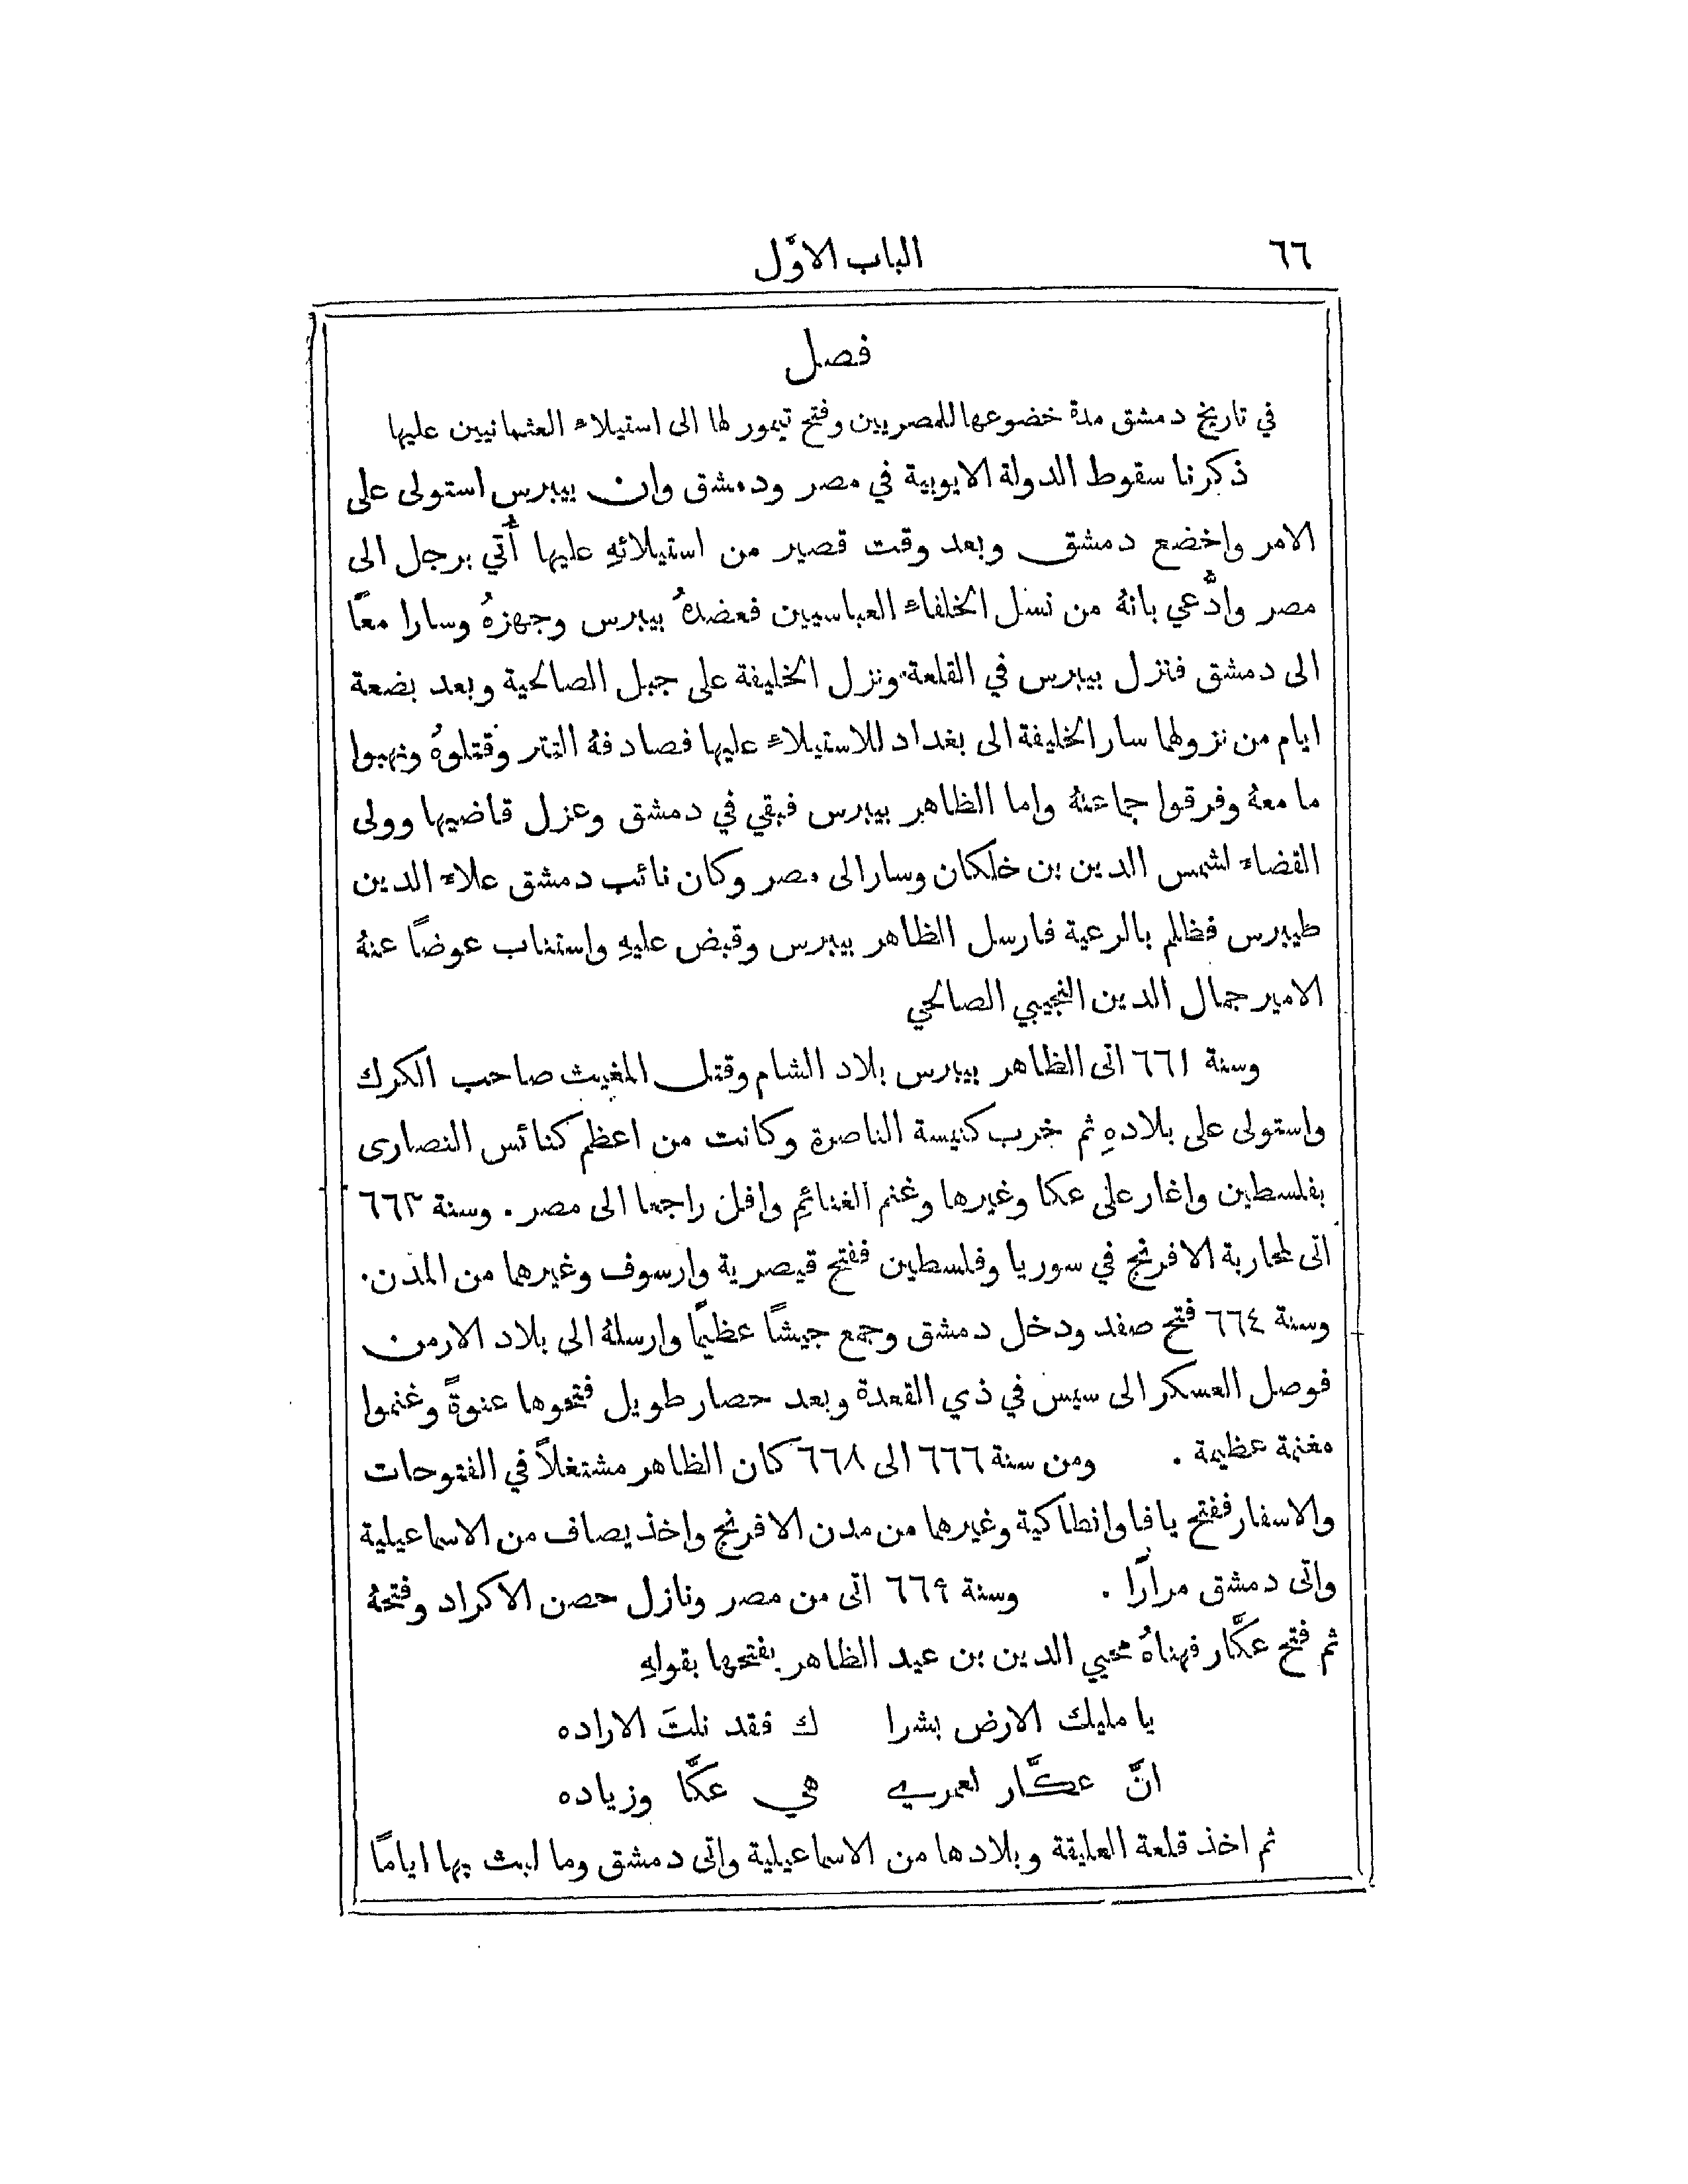 ٦٦ الباب الاوَّل
فصل
في تاريخ دمشق مدة خضوعها للمصريين وفتح تيمور لها الى استيلاء العثمانيين عليها
ذكرنا سقوط الدولة الايوبية في مصر ودمشق وان بيبرس استولى على
الامر واخضع دمشق وبعد وقت قصير من استيلائهِ عليها أُتي برجل الى
مصر وادُّعي بانهُ من نسل الخلفاء العباسيين فعضدهُ بيبرس وجهزهُ وسارا معًا
الى دمشق فنزل بيبرس في القلعة ونزل الخليفة على جبل الصالحية وبعد بضعة
ايام من نزولهما سار الخليفة الى بغداد للاستيلاء عليها فصادفهُ التتر وقتلوهُ ونهبوا
ما معهُ وفرقوا جماعتهُ واما الظاهر بيبرس فبقي في دمشق وعزل قاضيها وولى
القضاء لشمس الدين بن خلكان وسار الى مصر وكان نائب دمشق علاء الدين
طيبرس فظلم بالرعية فارسل الظاهر بيبرس وقبض عليهِ واستناب عوضًا عنهُ
الامير جمال الدين النجيبي الصالحي
وسنة ٦٦١ اتى الظاهر بيبرس بلاد الشام وقتل المغيث صاحب الكرك
واستولى على بلادهِ ثم خرب كنيسة الناصرة وكانت من اعظم كنائس النصارى
بفلسطين واغار على عكا وغيرها وغنم الغنائم وافل راجعا الى مصر. وسنة ٦٦٣
اتى لمحاربة الافرنج في سوريا وفلسطين ففتح قيصرية وارسوف وغيرهما من المدن.
وسنة ٦٦٤ فتح صفد ودخل دمشق وجمع جيشًا عظيمًا وارسلهُ الى بلاد الارمن
فوصل العسكر الى سيس في ذي القعدة وبعد حصار طويل فتحوها عنوةً وغنموا
مغنمة عظيمة. ومن سنة ٦٦٦ الى ٦٦٨ كان الظاهر مشتغلاً في الفتوحات
والاسفار ففتح يافا وانطاكية وغيرهما من مدن الافرنج واخذ يصاف من الاسماعيلية
واتى دمشق مرارًا. وسنة ٦٦٩ اتى من مصر ونازل حصن الاكراد وفتحهُ
ثم فتح عكَّار فهناهُ محيي الدين بن عبد الظاهر بفتحها بقولهِ
يا مليك الارض بشرا ك فقد نلتَ الاراده
انَّ عكَّار لعمري هي عكَّا وزياده
ثم اخذ قلعة العليقة وبلادها من الاسماعيلية واتى دمشق وما لبث بها ايامًا